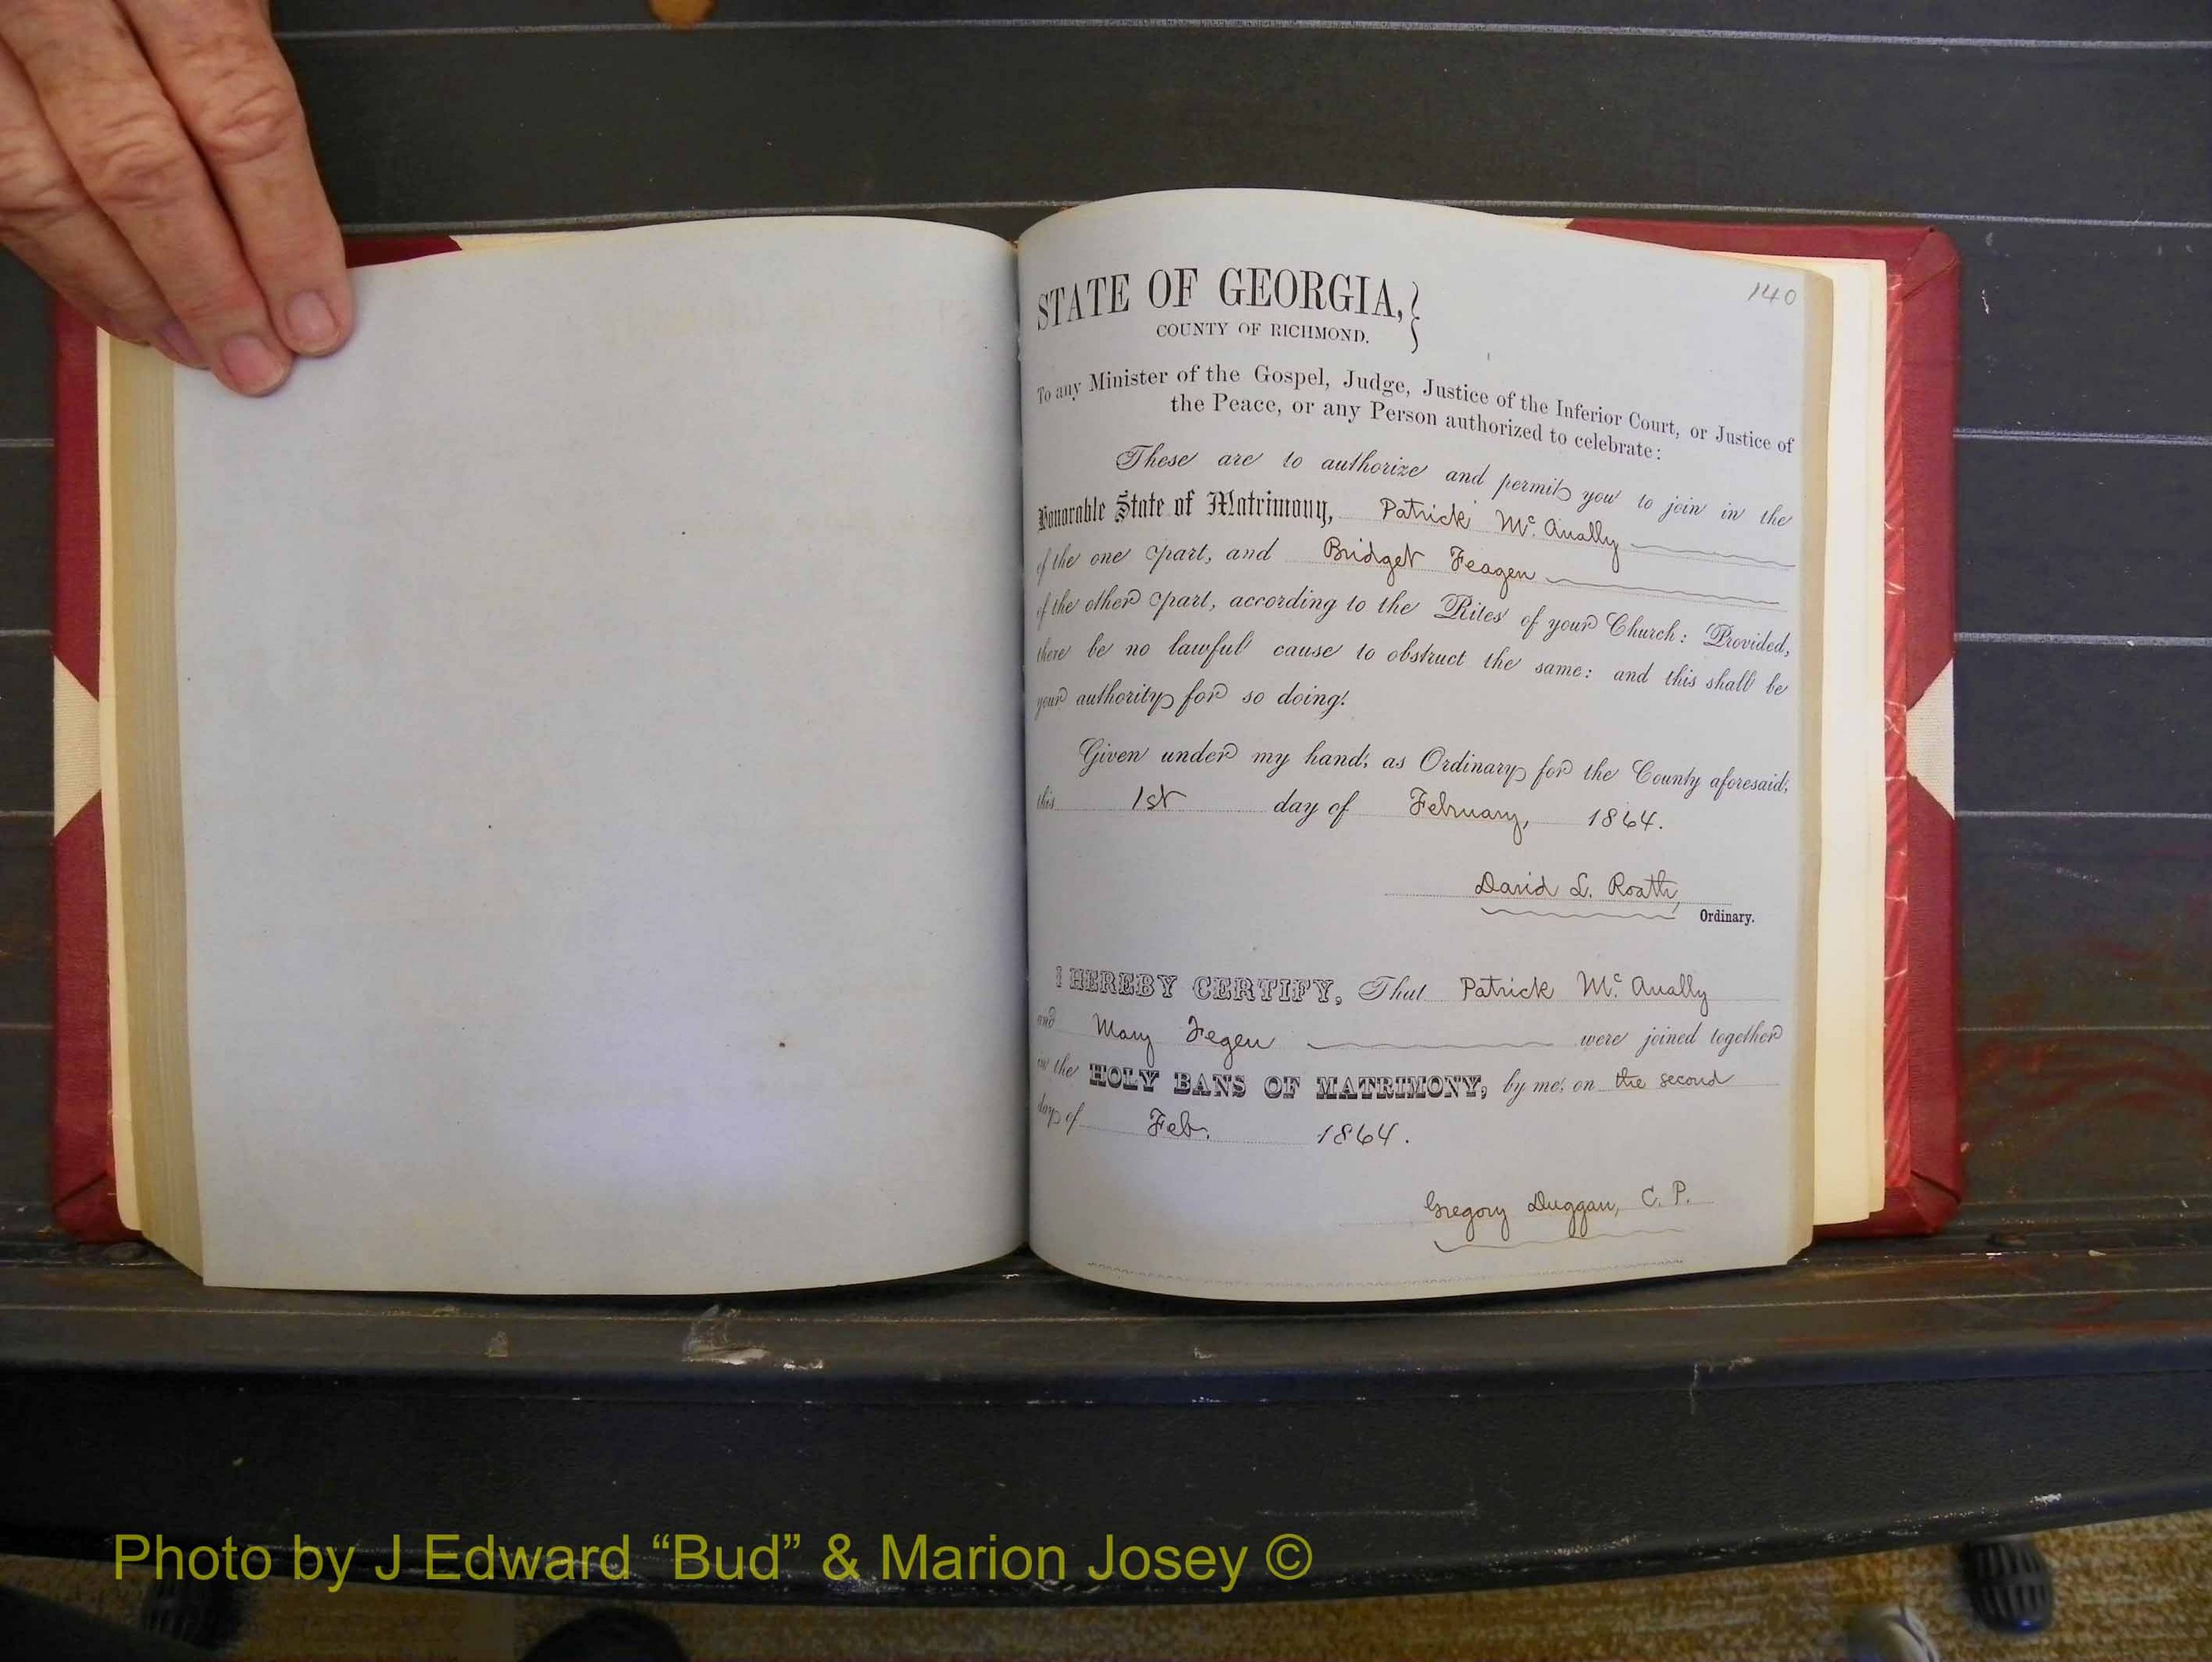 140
STATE OF GEORGIA,
COUNTY OF RICHMOND.
To any Minister of the Gospel, Judge, Justice of the Inferior Court, or Justice of
the Peace, or any Person authorized to celebrate:
These are to authorize and permit you to join in the
Honorable State of Matrimony, Patrick Mc. Anally
of the one part, and Bridget Feagen
of the other part, according to the Rites of your Church: Provided,
there be no lawful cause to obstruct the same: and this shall be
your authority for so doing.
Given under my hand, as Ordinary for the County aforesaid,
this 1st day of February, 1864.
David L. Roath,
Ordinary.
I HEREBY CERTIFY, That Patrick Mc. Anally
and Mary Fegen were joined together
in the HOLY BANS OF MATRIMONY, by me, on the second
day of Feb. 1864.
Gregory Duggan, C. P.
Photo by J Edward “Bud” & Marion Josey ©